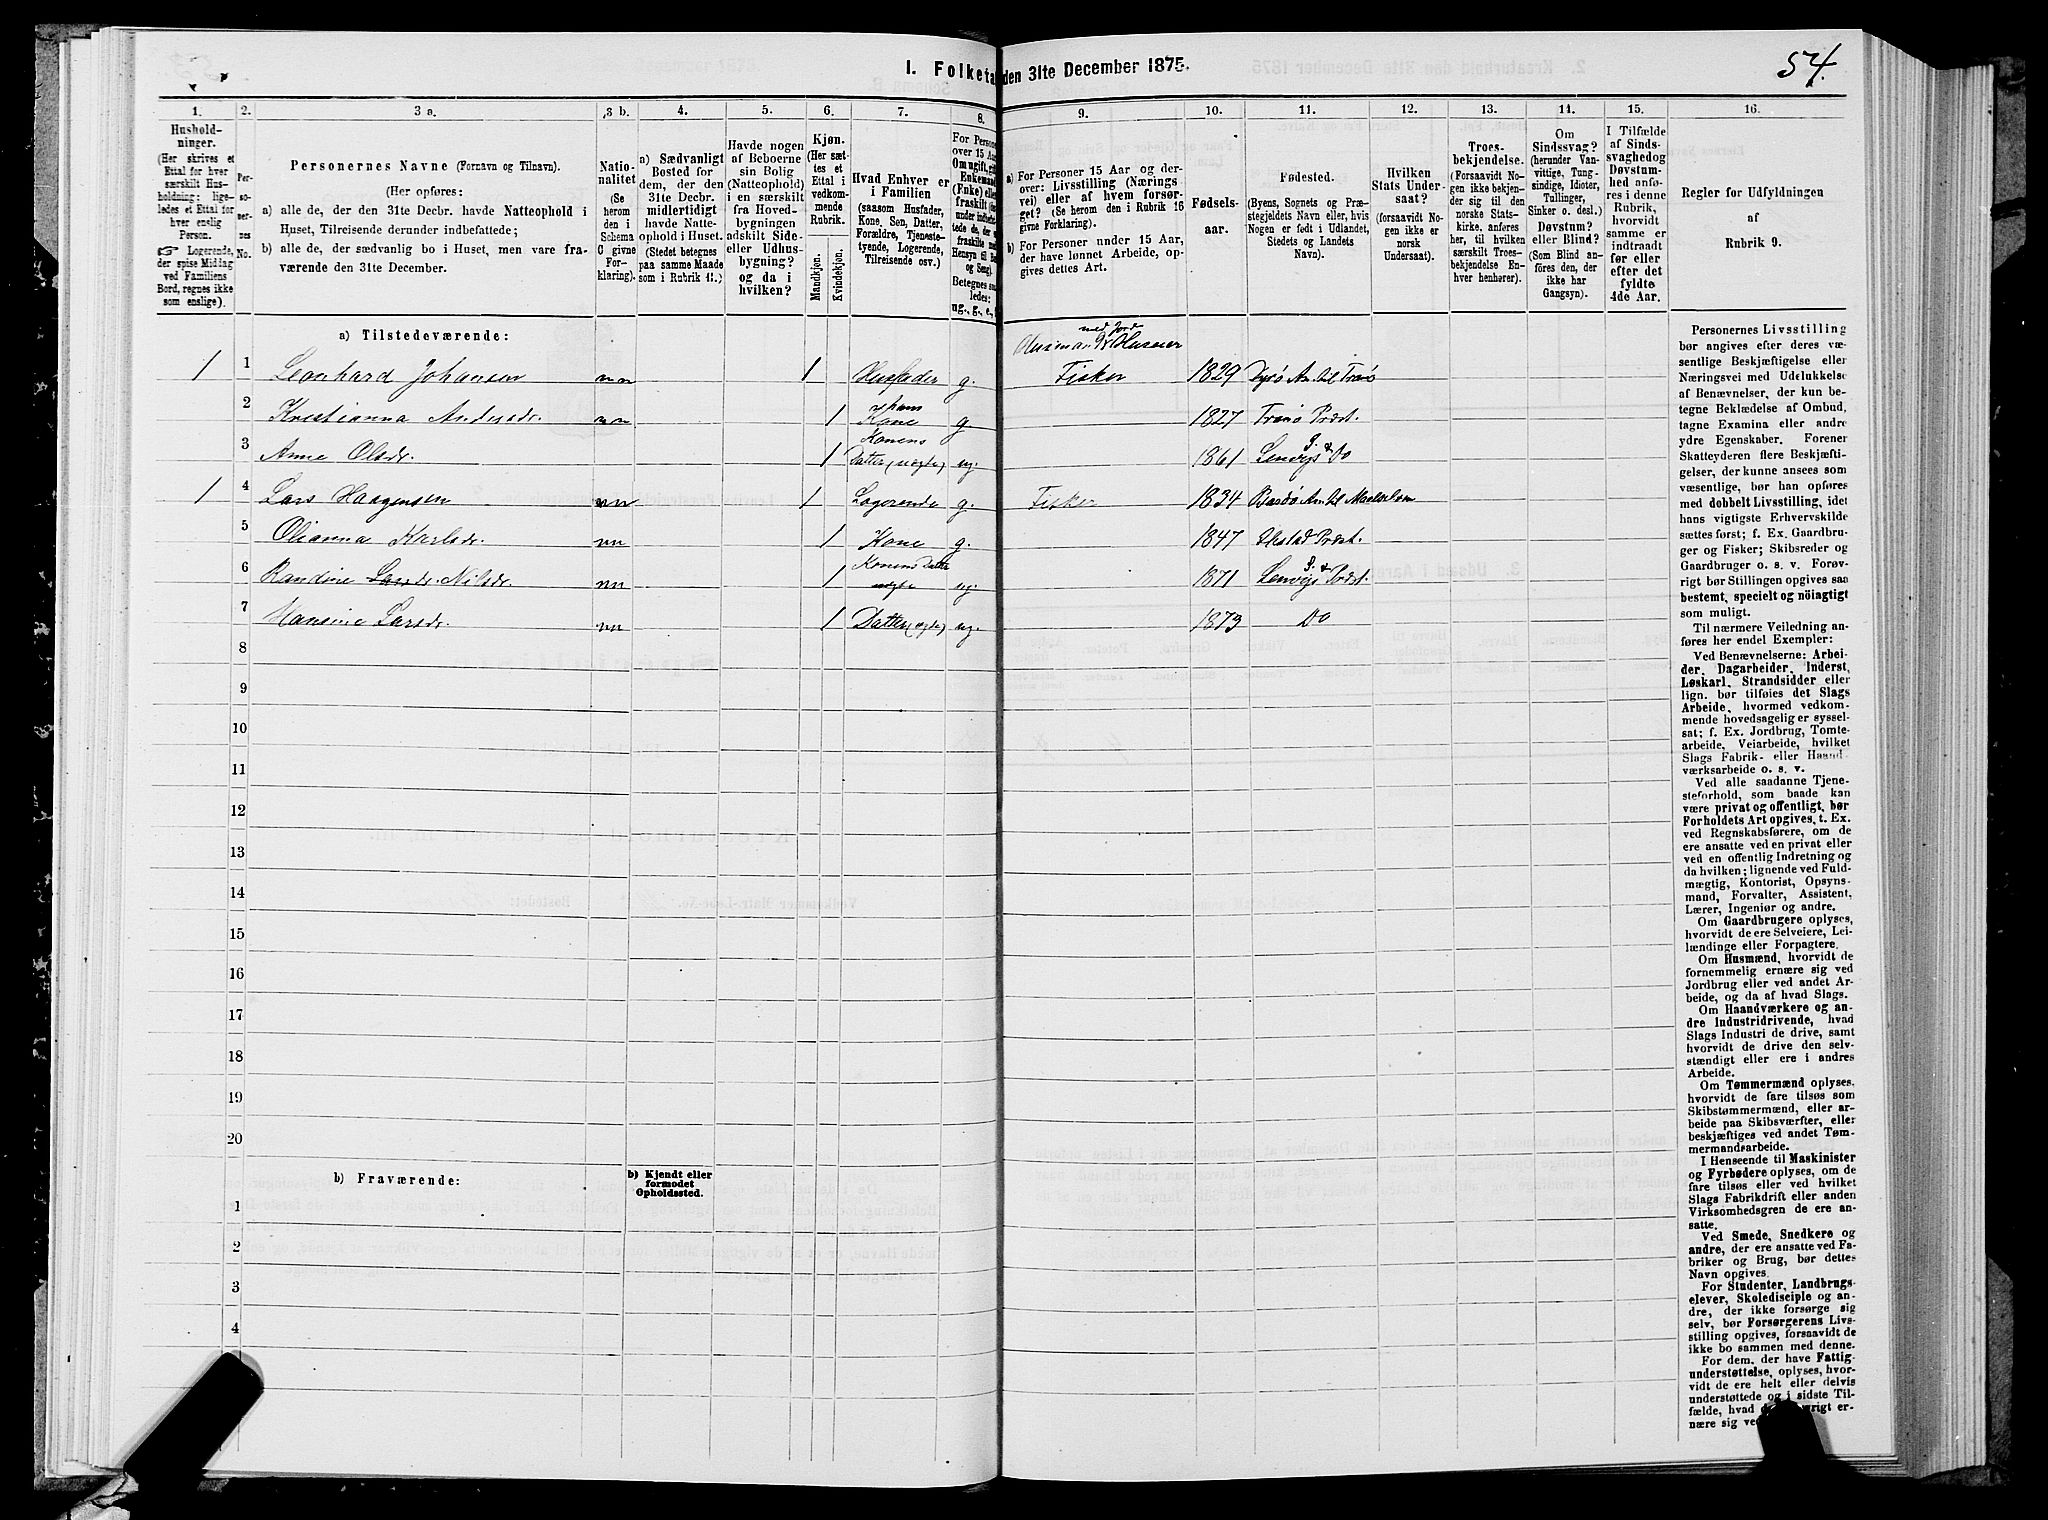 54.
1. Folketæ
den 31te December 1875.
1.
2.
3 a.
3 b.
4.
5.
6.
7.
8.
9.
10.
11.
12.
13.
14.
15.
16.
Hushold-
ninger.
(Her skrives et
Ettal for hver
særskilt Hus-
holdning; lige-
ledes et Ettal for
hver enslig
Person.
☞ Logerende,
der spise Middag
ved Familiens
Bord, regnes ikke
som enslige).
Per-
so-
ner-
nes
No.
Personernes Navne (Fornavn og Tilnavn).
(Her opføres:
a) alle de, der den 31te Decbr. havde Natteophold i
Huset, Tilreisende derunder indbefattede;
b) alle de, der sædvanlig bo i Huset, men vare fra-
værende den 31te December.
Natio-
nalitet
(Se
herom
den i
Schema
C givne
For-
klaring).
a) Sædvanligt
Bosted for
dem, der den
31te Decbr.
midlertidigt
havde Natte-
ophold i Huset.
(Stedet betegnes
paa samme Maade
som i Rubrik 11.)
Havde nogen
af Beboerne
sin Bolig
(Natteophold)
i en særskilt
fra Hoved-
bygningen
adskilt Side-
eller Udhus-
bygning?
og da i
hvilken?
Kjøn.
(Her sæt-
tes et
Ettal i
vedkom-
mende
Rubrik.
Mandkjøn.
Kvindekjøn.
Hvad Enhver er
i Familien
(saasom Husfader,
Kone, Søn, Datter,
Forældre, Tjeneste-
tyende, Logerende,
Tilreisende osv.)
For Person
over 15 Aar
Om ugift, gift
Enkemand
(Enke) eller
fraskilt
Betegnes saa
ledes:
ug., g., e.,
a) For Personer 15 Aar og der-
over: Livsstilling (Nærings
vei) eller af hvem forsør-
get? (Se herom den i Rubrik 16
givne Forklaring).
b) For Personer under 15 Aar,
der have lønnet Arbeide, op-
gives dettes Art.
Fødsels-
aar.
Fødested.
(Byens, Sognets og Præ-
stegjeldets Navn eller, hvis
Nogen er født i Udlandet,
Stedets og Landets
Navn).
Hvilken
Stats Under-
saat?
(forsaavidt No-
gen ikke er
norsk
Undersaat).
Troes-
bekjendelse.
(Forsaavidt No-
gen ikke bekjen-
der sig til den
norske Stats-
kirke, anføres
her, til hvilken
særskilt Troes-
bekjendelse En-
hver henhører).
Om
Sindssvag?
(herunder Van-
vittige, Tung-
sindige, Idioter,
Tullinger,
Sinker o. desl.)
Døvstum?
eller Blind?
(Som Blind an-
føres den, der
ikke har
Gangsyn).
I Tilfælde
af Sinds-
svaghed og
Døvstum-
hed anfø-
res i denne
Rubrik,
hvorvidt
samme er
indtraadt
før eller
efter det
fyldte
4de Aar.
Regler for Udfyldningen
af
Rubrik 9.
a) Tilstedeværende:
med Jord
1 1 Leonhard Johansen nn 1 Husfader g. Fisker 1829 Dyrø An. til Tranø
2 Kristianna Andersdr. nn 1 hans Kone g. 1827 Tranø Præst.
3 Anne Olsdr. 1 Konens Datter (uægte) ug. 1861 Lenvigs S. & Do
1 4 Lars Haagensen nn 1 Logerende g. Fisker 1834 Bardø An. til Maalselven
5 Olianna Karlsdr. nn 1 Kone g. 1847 Ibestad Præst.
6 Randine Larsdr. Nilsdr. nn 1 Konens Datter uægte ug 1871 Lenvigs S. & Præst.
7 Hansine Larsdr. nn 1 Datter (ægte) ug. 1873 Do
8
9
10
11
12
13
14
15
16
17
18
19
20
b) Fraværende:
b) Kjendt eller
formodet
Opholdssted.
1
2
3
4
Personernes Livsstilling
bør angives efter deres væ-
sentlige Beskjæftigelse eller
Næringsvei med Udelukkelse
af Benævnelser, der kun be-
tegne Beklædelse af Ombud,
tagne Examina eller andre
ydre Egenskaber. Forener
Skatteyderen flere Beskjæfti-
gelser, der kunne ansees som
væsentlige, bør han opføres
med dobbelt Livsstilling, idet
hans vigtigste Erhvervskilde
sættes først; f. Ex. Gaardbru-
ger og Fisker; Skibsreder og
Gaardbruger o. s. v. Forøv-
rigt bør Stillingen opgives saa
bestemt, specielt og nöiagtigt
som muligt.
Til nærmere Veiledning an-
føres her endel Exempler:
Ved Benævnelserne: Arbei-
der, Dagarbeider, Inderst,
Løskarl, Strandsidder eller
lign. bør tilføies det Slags
Arbeide, hvormed vedkom-
mende hovedsagelig er syssel-
sat; f. Ex. Jordbrug, Tomte-
arbeide, Veiarbeide, hvilket
Slags Fabrik- eller Haand-
værksarbeide o. s. v.
Ved alle saadanne Tjene-
steforhold, som baade kan
være privat og offentligt, bør
Forholdets Art opgives, t. Ex.
ved Regnskabsførere, om de
ere ansatte ved en privat eller
ved en offentlig Indretning og
da hvilken; lignende ved Fuld-
mægtig, Kontorist, Opsyns-
mand, Forvalter, Assistent,
Lærer, Ingeniør og andre.
Om Gaardbrugere oplyses,
hvorvidt de ere Selveiere, Lei-
lændinge eller Forpagtere.
Om Husmænd, hvorvidt de
fornemmelig ernære sig ved
Jordbrug eller ved andet Ar-
beide, og da af hvad Slags.
Om Haandværkere og an-
dre Industridrivende, hvad
Slags Industri de drive, samt
hvorvidt de drive den selv-
stændigt eller ere i andres
Arbeide.
Om Tømmermænd oplyses,
hvorvidt de fare tilsøs som
Skibstømmermænd, eller ar-
beide paa Skibsværfter, eller
beskjæftiges ved andet Tøm-
mermandsarbeide.
I Henseende til Maskinister
og Fyrbødere oplyses, om de
fare tilsøs eller ved hvilket
Slags Fabrikdrift eller anden
Virksomhedsgren de ere an-
satte.
Ved Smede, Snedkere og
andre, der ere ansatte ved Fa-
briker og Brug, bør dettes
Navn opgives.
For Studenter, Landbrugs-
elever, Skoledisciple og an-
dre, der ikke forsørge sig
selv, bør Forsørgerens Livs-
stilling opgives, forsaavidt de
ikke bo sammen med denne.
For dem, der have Fattig-
understøttelse, oplyses, hvor-
vidt de ere helt eller delvis
understøttede og i sidste Til-
fælde, hvad de øvrigt er-
nære sig ved